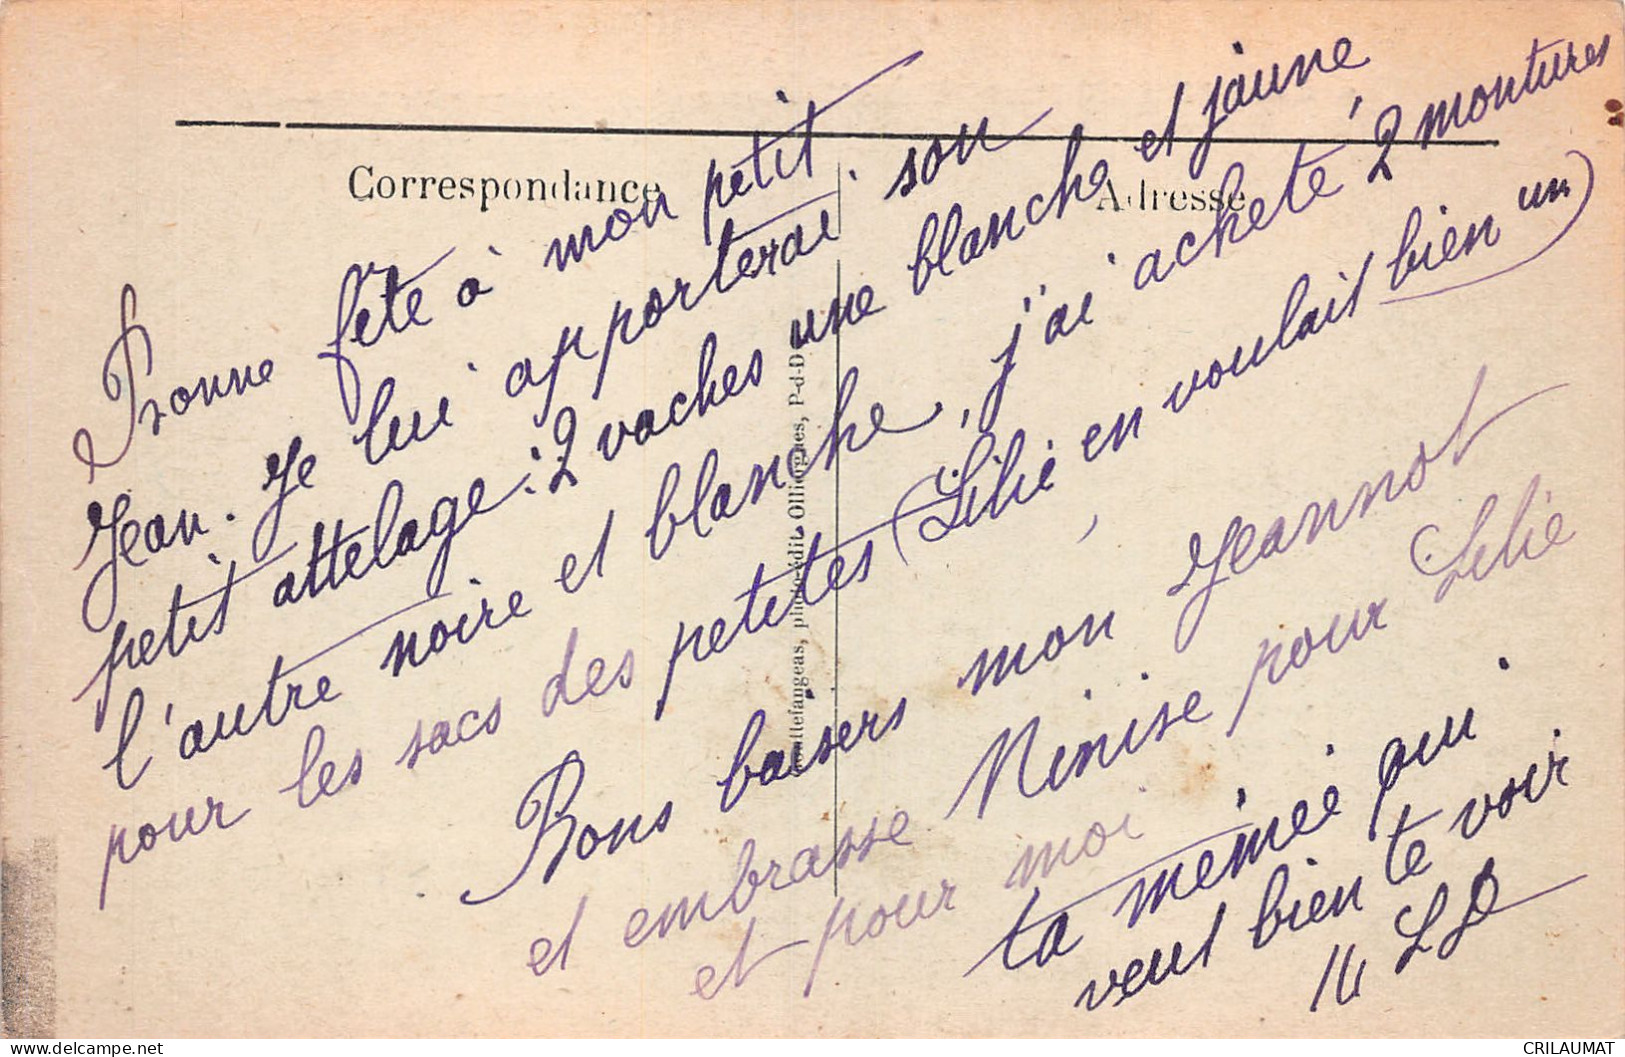 Correspondance
Adresse
Bonne fête à mon petit
Jean. Je lui apporterai son
petit attelage : 2 vaches une blanche et jaune
l'autre noire et blanche, j'ai acheté 2 montures
pour les sacs des petites (Lilie en voulait bien un)
Bons baisers mon Jeannot
et embrasse Ninise pour Lilie
et pour moi
ta mémée qui
veut bien te voir
phot-édit. Olliergues, P-d-D
CRILAUMAT